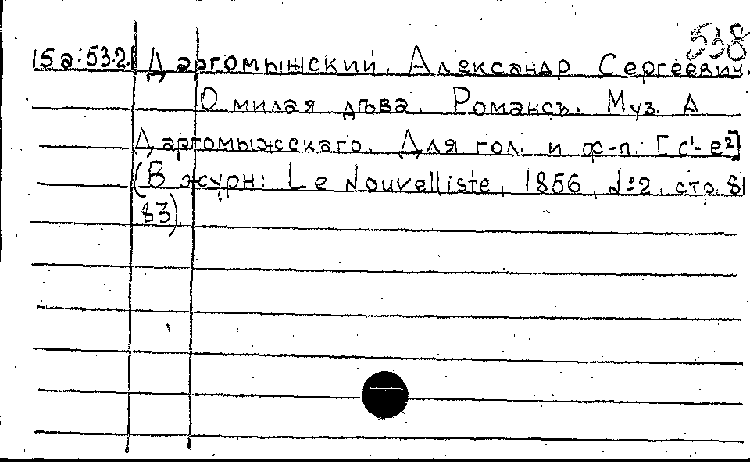 538
15а:53.2. Даргомыжский. Александр Сергеевич.
О милая дѣва. Романсъ. Муз. А
Даргомыжскаго. Для гол. и ф-п. [c¹-e²]
(В журн: Le Nouvelliste, 1856, №2, стр. 81
83)